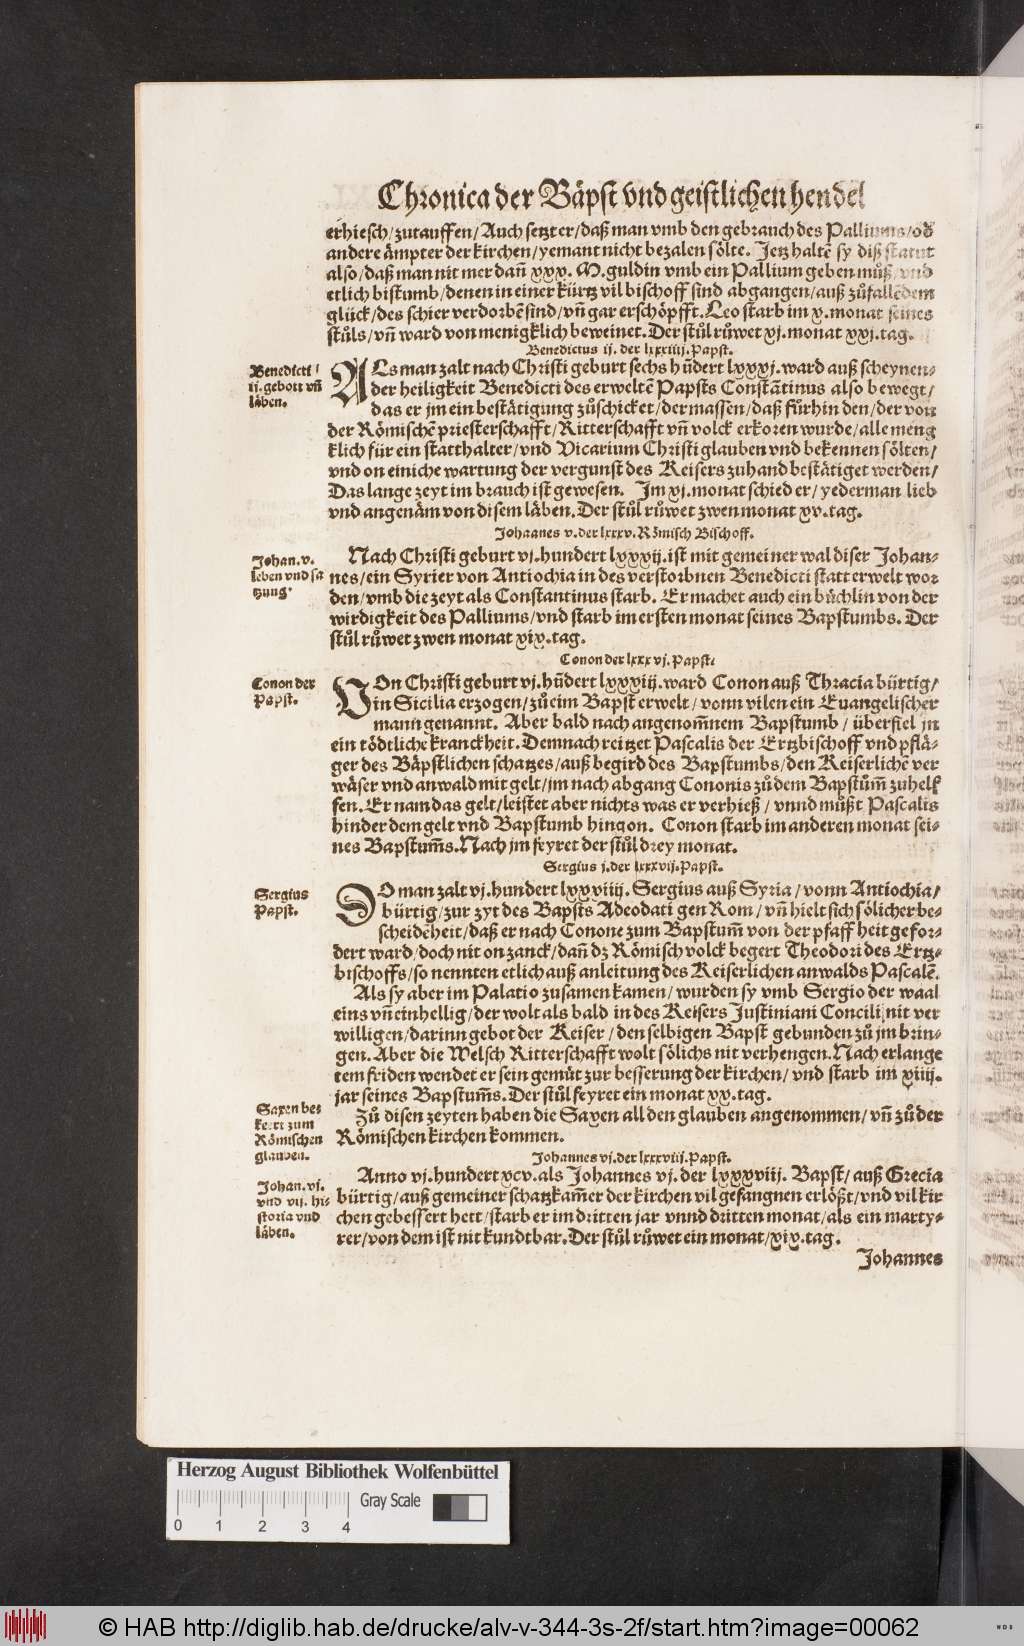 Chronica der Bäpst vnd geistlichen hendel
erhiesch/zutauffen/Auch setzt er/daß man vmb den gebrauch des Palliums/od̃
andere ämpter der kirchen/yemant nicht bezalen sölte. Jetz haltẽ sy diß statut
also/daß man nit mer dañ xxx. M. guldin vmb ein Pallium geben můß/vnd
etlich bistumb/denen in einer kürtz vil bischoff sind abgangen/auß zůfallẽdem
glück/des schier verdorbẽ sind/vñ gar erschöpfft. Leo starb im x. monat seines
stůls/vñ ward von menigklich beweinet. Der stůl růwet xj. monat xxj. tag.
Benedictus ij. der lxxxiiij. Papst.
Benedicti/
ij. gebott vñ
läben.
ALs man zalt nach Christi geburt sechs hũdert lxxxj. ward auß scheynen-
der heiligkeit Benedicti des erweltẽ Papsts Constãtinus also bewegt/
das er jm ein bestätigung zůschicket/dermassen/daß fürhin den/der von
der Römischẽ priesterschafft/Ritterschafft vñ volck erkoren wurde/alle meng
klich für ein statthalter/vnd Vicarium Christi glauben vnd bekennen sölten/
vnd on einiche wartung der vergunst des Keisers zuhand bestätiget werden/
Das lange zeyt im brauch ist gewesen. Im xj. monat schied er/yederman lieb
vnd angenäm von disem läben. Der stůl růwet zwen monat xv. tag.
Johannes v. der lxxxv. Römisch Bischoff.
Johan. v.
leben vnd sa
tzung.
Nach Christi geburt vj. hundert lxxxij. ist mit gemeiner wal diser Johan-
nes/ein Syrier von Antiochia in des verstorbnen Benedicti statt erwelt wor
den/vmb die zeyt als Constantinus starb. Er machet auch ein büchlin von der
wirdigkeit des Palliums/vnd starb im ersten monat seines Bapstumbs. Der
stůl růwet zwen monat xix. tag.
Conon der lxxxvj. Papst.
Conon der
Papst.
VOn Christi geburt vj. hũdert lxxxiij. ward Conon auß Thracia bürtig/
in Sicilia erzogen/zů eim Bapst erwelt/vonn vilen ein Euangelischer
mann genannt. Aber bald nach angenom̃nem Bapstumb/überfiel jn
ein tödtliche kranckheit. Demnach reitzet Pascalis der Ertzbischoff vnd pflä-
ger des Bäpstlichen schatzes/auß begird des Bapstumbs/den Keiserlichẽ ver
wäser vnd anwald mit gelt/jm nach abgang Cononis zů dem Bapstum̃ zuhelf
fen. Er nam das gelt/leistet aber nichts was er verhieß/vnnd můßt Pascalis
hinder dem gelt vnd Bapstumb hingon. Conon starb im anderen monat sei-
nes Bapstum̃s. Nach jm feyret der stůl drey monat.
Sergius j. der lxxxvij. Papst.
Sergius
Papst.
DO man zalt vj. hundert lxxxiiij. Sergius auß Syria/vonn Antiochia/
bürtig/zur zyt des Bapsts Adeodati gen Rom/vñ hielt sich sölicher be-
scheidẽheit/daß er nach Conone zum Bapstum̃ von der pfaffheit gefor-
dert ward/doch nit on zanck/dañ dz Römisch volck begert Theodori des Ertz-
bischoffs/so nennten etlich auß anleitung des Keiserlichen anwalds Pascalẽ.
Als sy aber im Palatio zusamen kamen/wurden sy vmb Sergio der waal
eins vñ einhellig/der wolt als bald in des Keisers Justiniani Concilij nit ver
willigen/darinn gebot der Keiser/den selbigen Bapst gebunden zů jm brin-
gen. Aber die Welsch Ritterschafft wolt sölichs nit verhengen. Nach erlange
tem friden wendet er sein gemüt zur besserung der kirchen/vnd starb im xiiij.
jar seines Bapstum̃s. Der stůl feyret ein monat xx. tag.
Saxen be-
kert zum
Römischen
glauben.
Zů disen zeyten haben die Saxen all den glauben angenommen/vñ zů der
Römischen kirchen kommen.
Johannes vj. der lxxxviij. Papst.
Johan. vj.
vnd vij. hi-
storia vnd
läben.
Anno vj. hundert xcv. als Johannes vj. der lxxxviij. Bapst/auß Grecia
bürtig/auß gemeiner schatzkam̃er der kirchen vil gefangnen erlößt/vnd vil kir
chen gebessert hett/starb er im dritten jar vnnd dritten monat/als ein marty-
rer/von dem ist nit kundtbar. Der stůl růwet ein monat/xix. tag.
Johannes
Herzog August Bibliothek Wolfenbüttel
Gray Scale
0 1 2 3 4
© HAB http://diglib.hab.de/drucke/alv-v-344-3s-2f/start.htm?image=00062